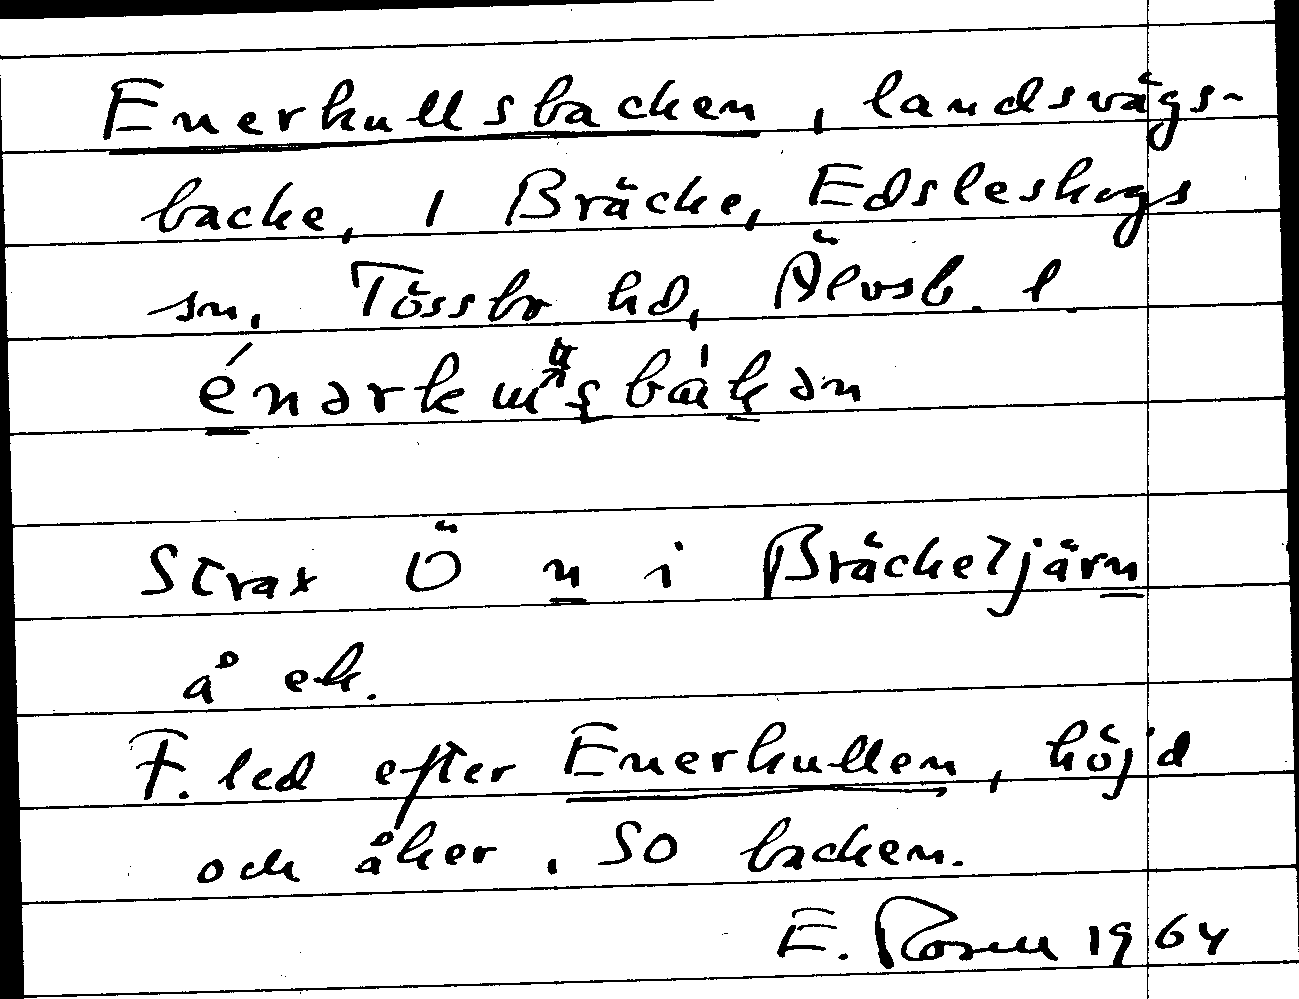 Enerkullsbacken, landsvägs-
backe, i Bräcke, Edsleskogs
sn, Tössbo hd, Älvsb. l.
Strax Ö n i Bräcketjärn
å ek.
F. led efter Enerkullen, höjd
och åker, SO backen.
E. Rosell 1964